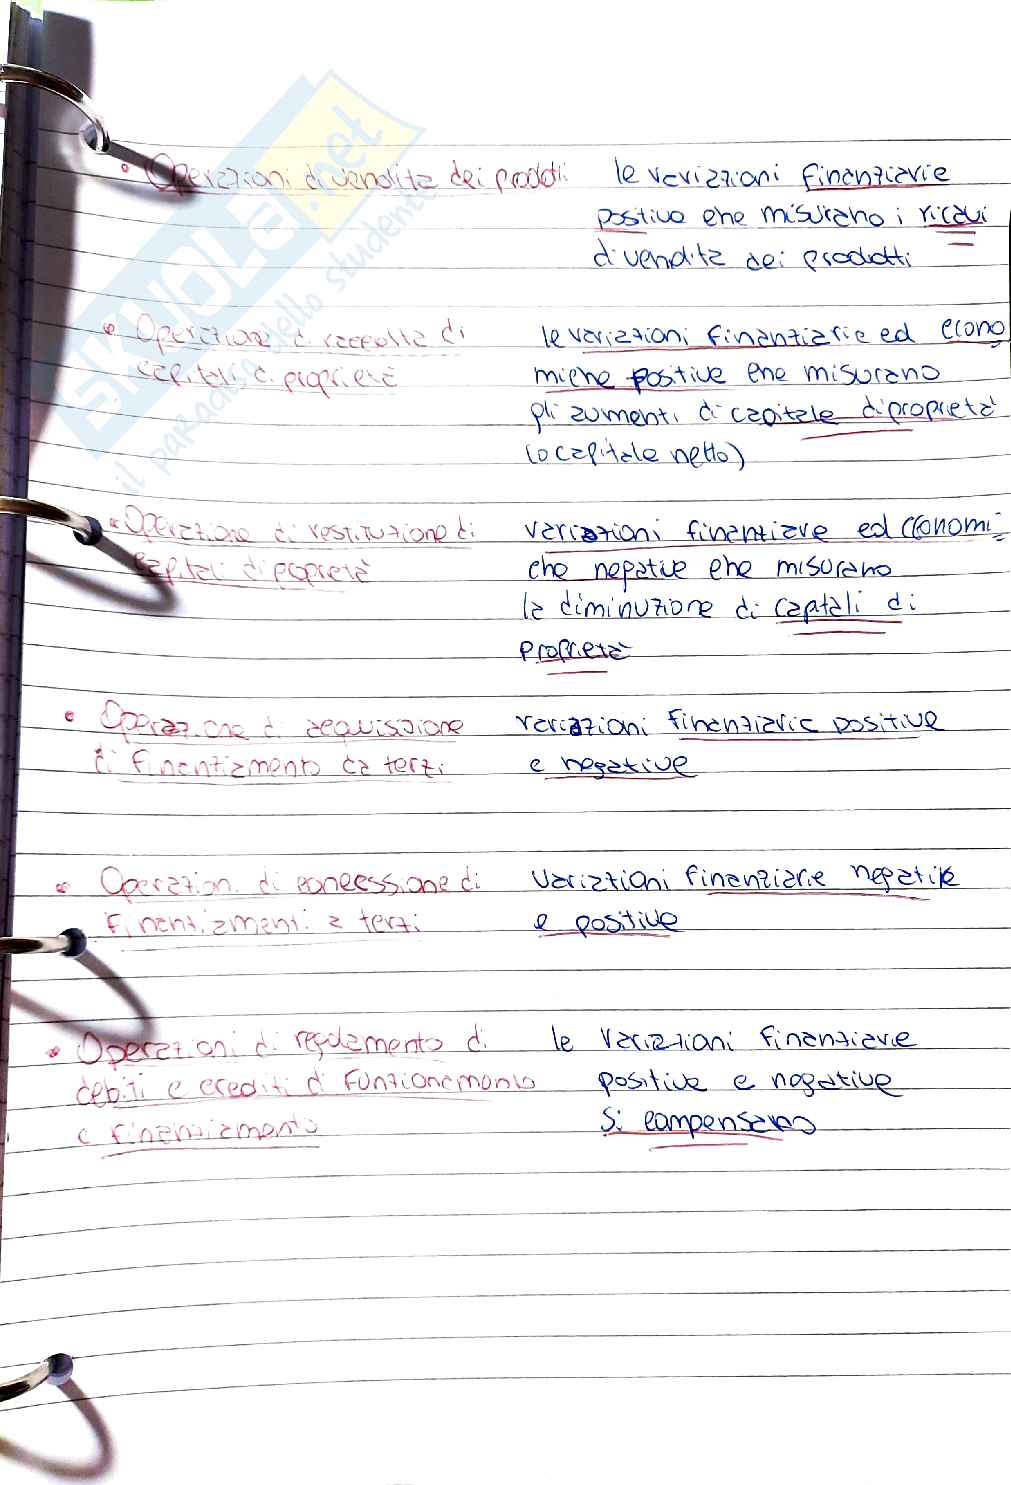 • Operazioni di vendita dei prodotti le variazioni finanziarie
positive che misurano i ricavi
di vendita dei prodotti
• Operazione di raccolta di le variazioni finanziarie ed econo
capitali di proprietà miche positive che misurano
gli aumenti di capitale di proprietà
(o capitale netto)
• Operazione di restituzione di variazioni finanziarie ed economi
capitali di proprietà che negative che misurano
la diminuzione di captali di
proprietà
• Operazione di acquisizione variazioni finanziarie positive
di finanziamento da terzi e negative
• Operazioni di concessione di variazioni finanziarie negative
finanziamenti a terzi e positive
• Operazioni di regolamento di le variazioni finanziarie
debiti e crediti di funzionamento positive e negative
e finanziamento si compensano
SKUOLA.net
il paradiso dello studente